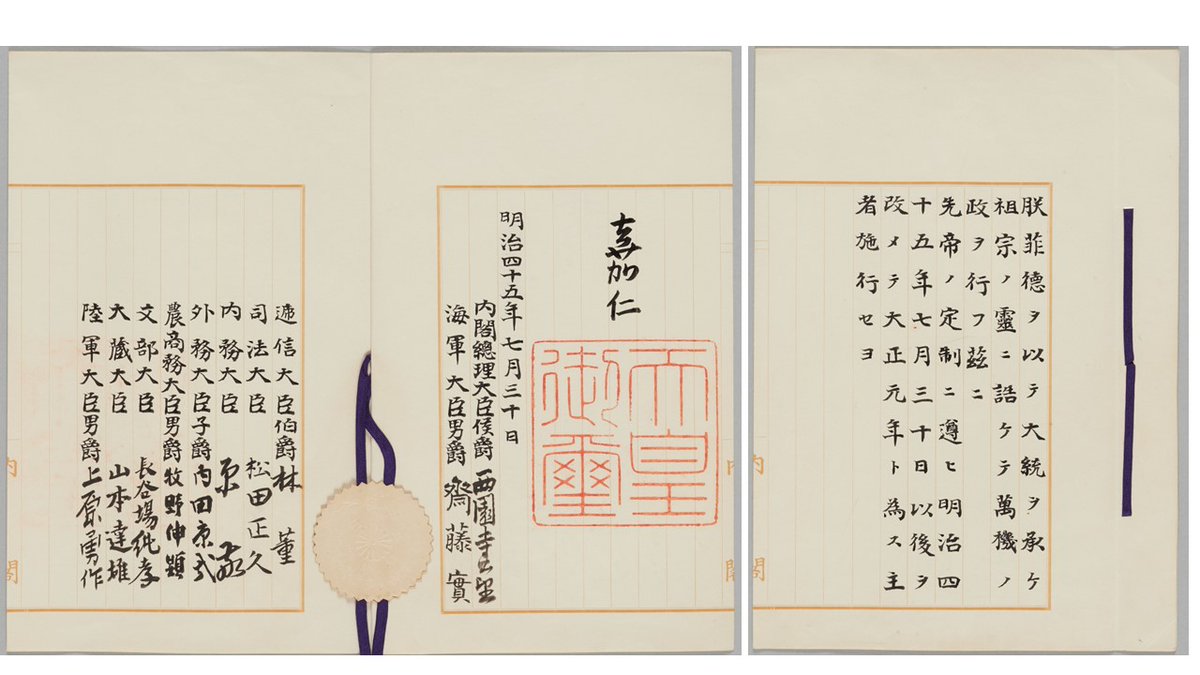 朕菲德ヲ以テ大統ヲ承ケ
祖宗ノ靈ニ誥ケテ萬機ノ
政ヲ行フ茲ニ
先帝ノ定制ニ遵ヒ明治四
十五年七月三十日以後ヲ
改メテ大正元年ト為ス主
者施行セヨ
嘉仁
天皇
御璽
明治四十五年七月三十日
内閣總理大臣侯爵 西園寺公望
海軍大臣男爵 齋藤 實
遞信大臣伯爵 林 董
司法大臣 松田正久
内務大臣 原 敬
外務大臣子爵 内田康哉
農商務大臣男爵 牧野伸顕
文部大臣 長谷場純孝
大藏大臣 山本達雄
陸軍大臣男爵 上原勇作